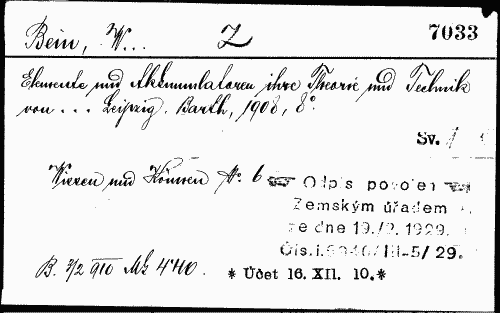 Bein, W... Z 7033
Elemente und Akkumulatoren ihre Theorie und Technik
von ... Leipzig. Barth, 1908, 8°.
Sv. 1
Wissen und Können No. 6
Odpis povolen
Zemským úřadem
ze dne 19./2. 1929.
Čís. I. /III-5/ 29.
B. 7/2 910 Mk 4'40.
* Účet 16. XII. 10.*